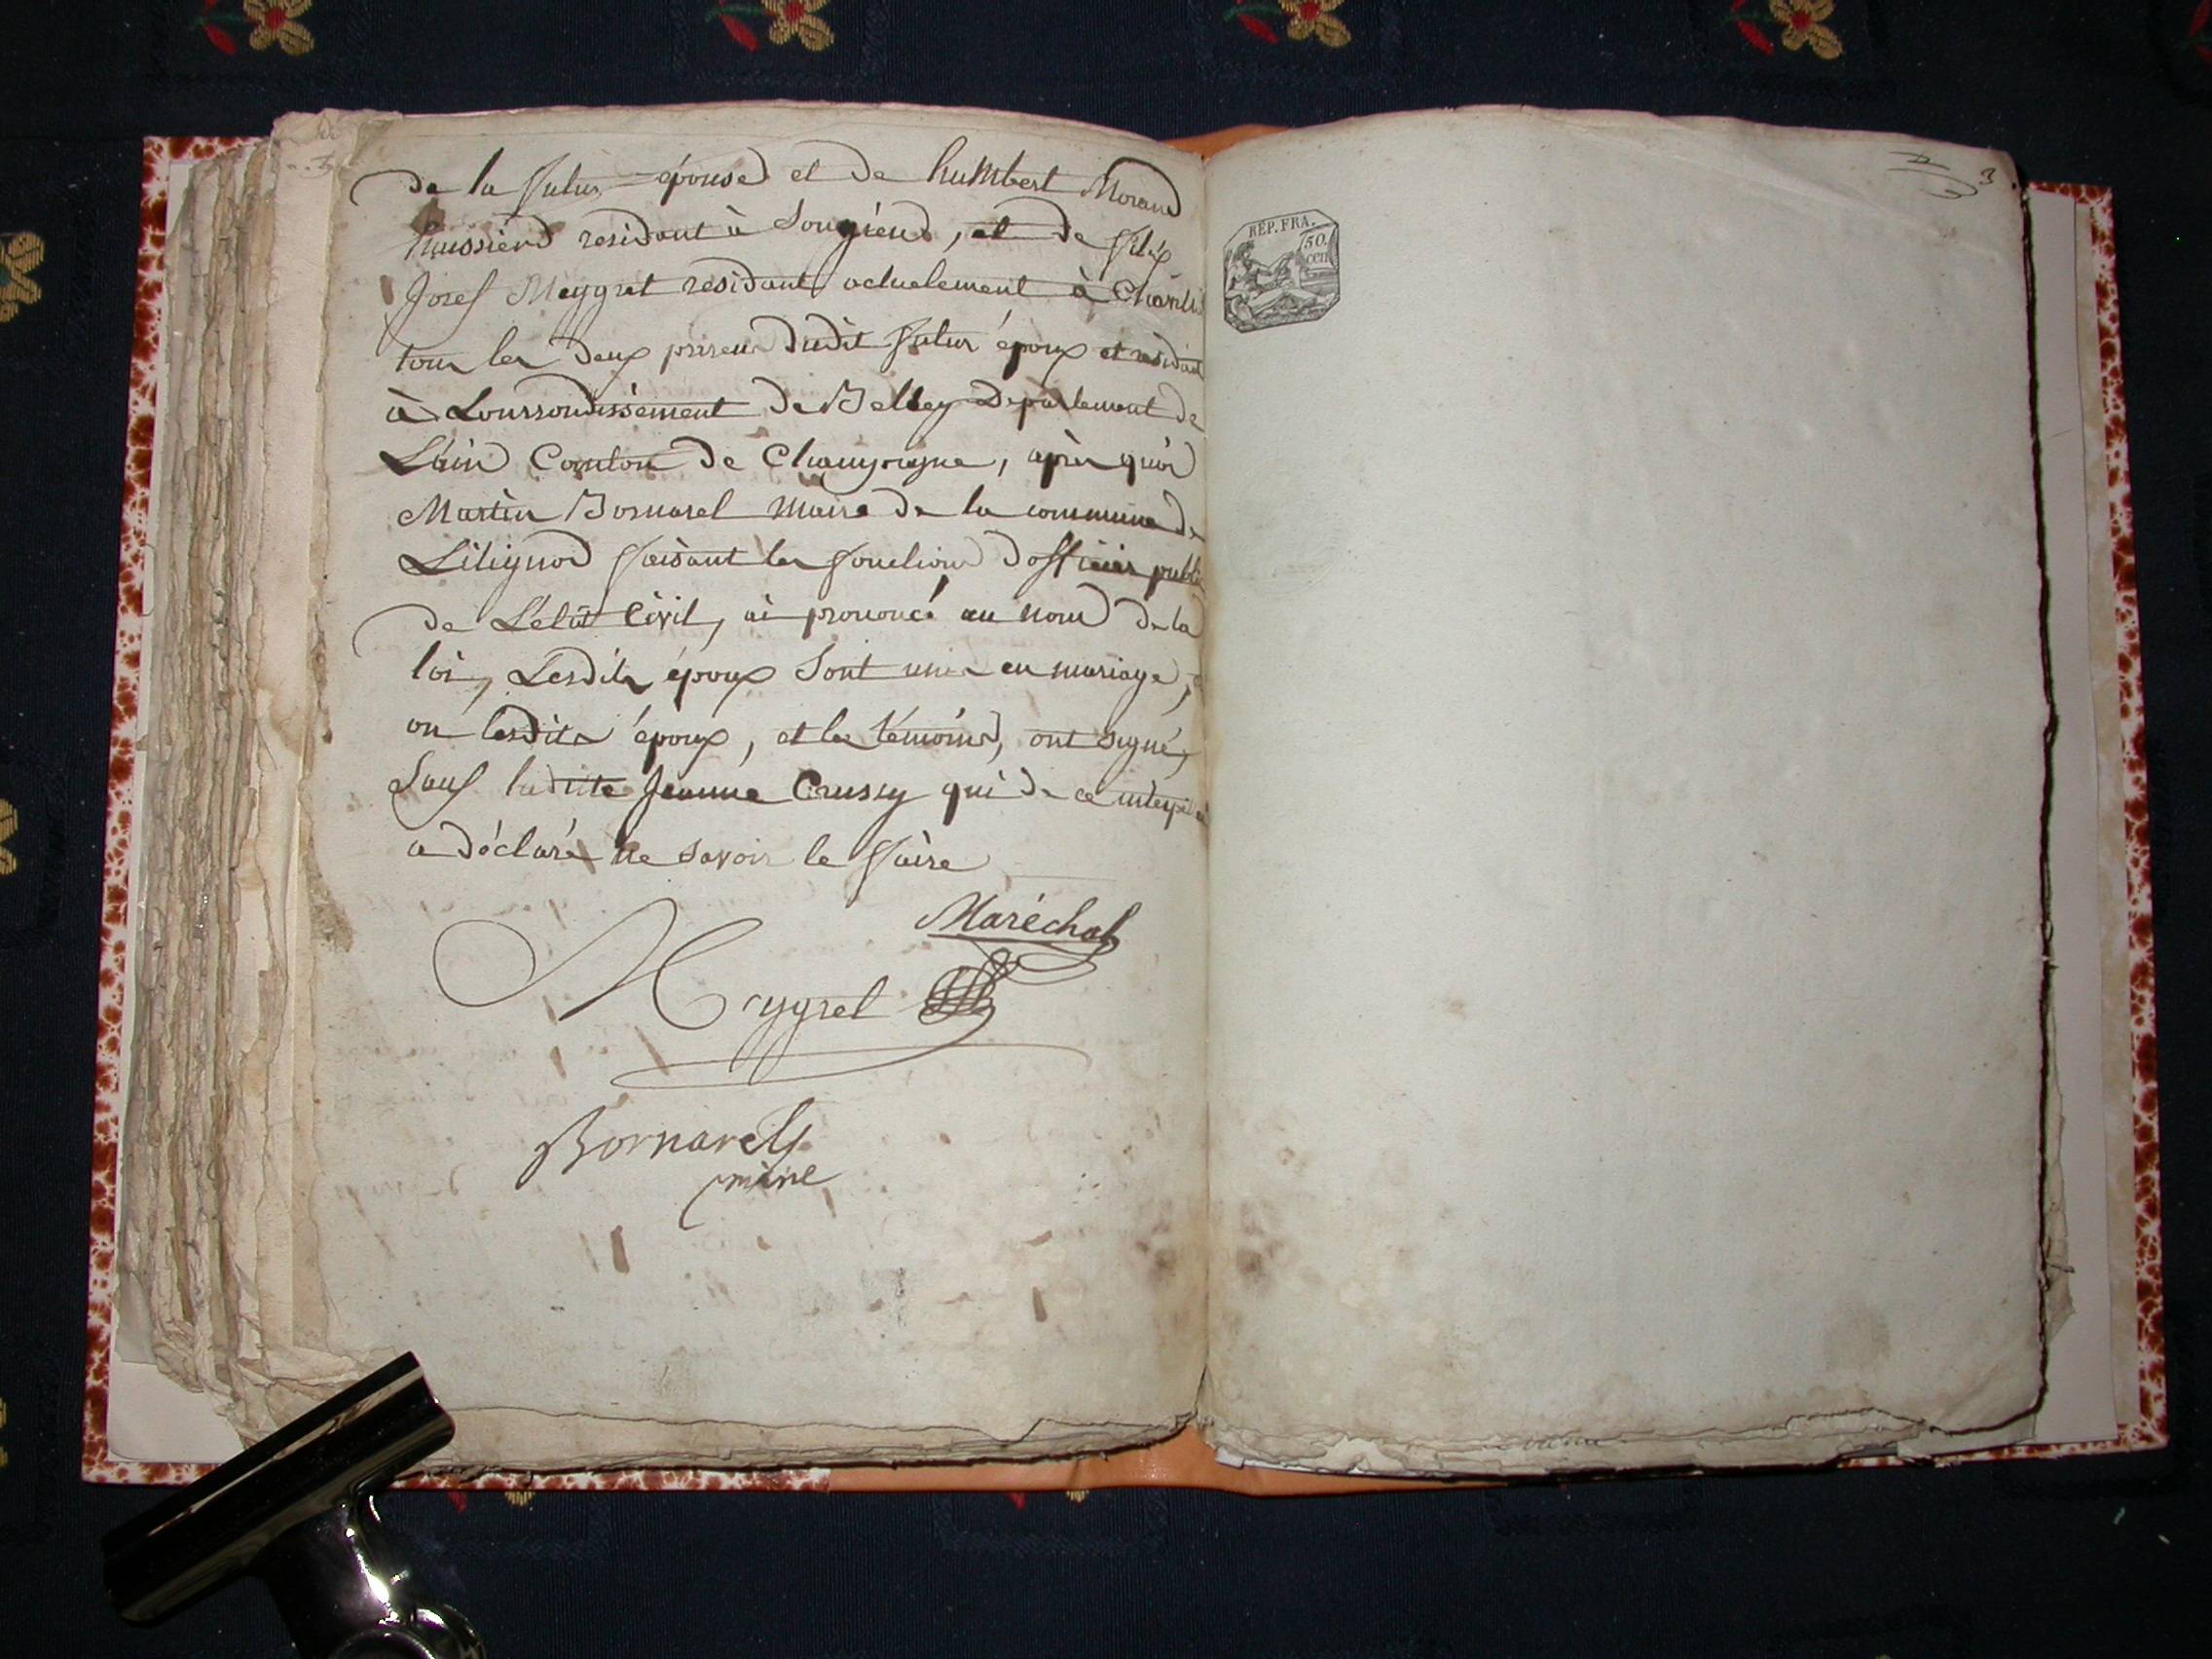 de la futur épouse et de humbert Morand
huissiere residant à Songieud, et de
Josef Meygret residant actuelement à
tous les deux dudit futur époux et residant
à Lourrondissement de Belley Departement de
Lain Conton de Champagne, après quoi
Martin Bornarel Maire de la commune de
Lilignod faisant les fonctions dofficier public
de Létat Civil, ai prononcé au nom de la
loi, Lesdits époux Sont unis en mariage,
on lesdits époux, et les témoins, ont signé,
Sauf ladite Jeanne Crussy qui de ce
a déclaré ne savoir le faire
Maréchal
Meygret
Bornarel
maire
REP. FRA.
50.
cen
3